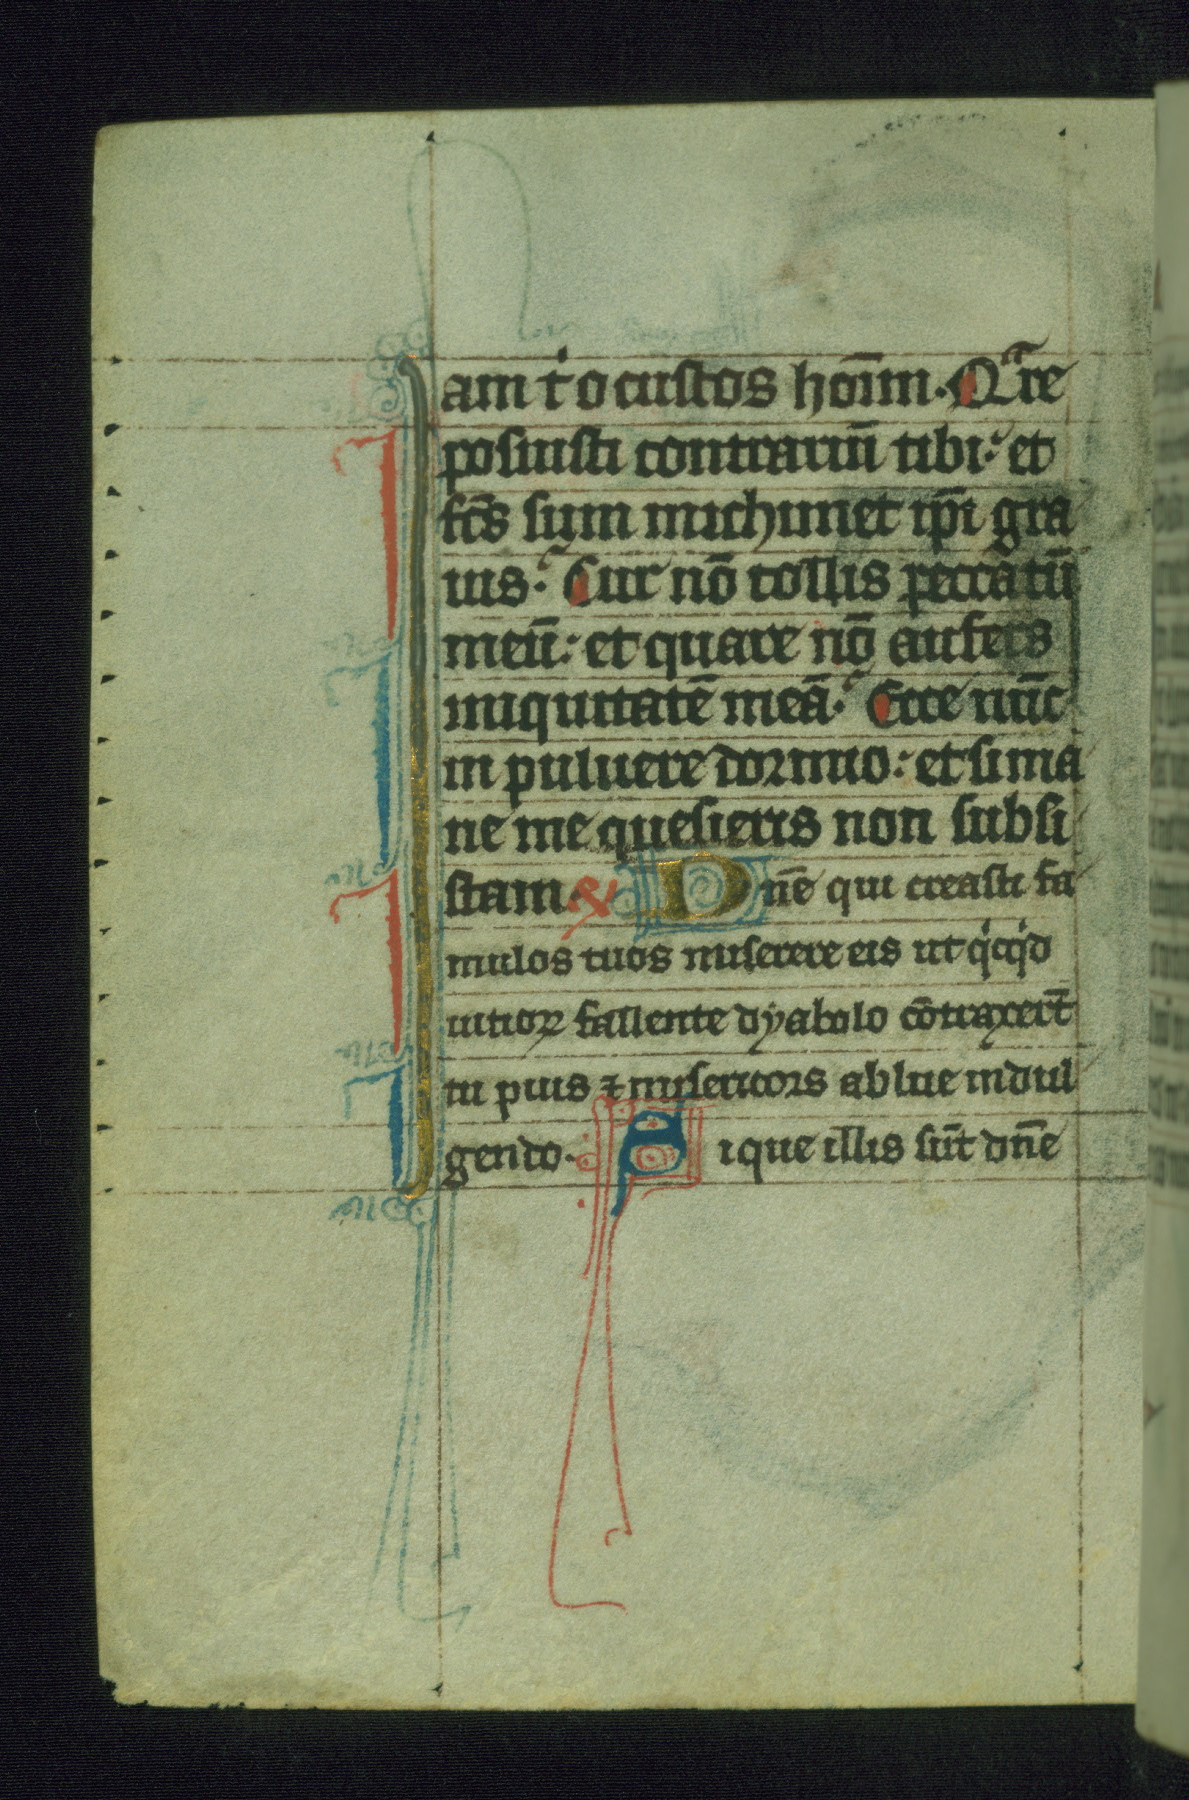 am t̾ o custos hoīm. Qᵃre
posuisti contrariū tibi: et
fc̄s sum michimet ip̄i gra
uis. Cur nō tollis peccatū
meū: et quare nō aufers
iniquitatē meā. Ecce nūc
in puluere dormio: et si ma
ne me quesieris non subsi
stam. R Dn̄e qui creasti fa
mulos tuos miserere eis ut qͥcqͥd
uitioꝝ fallente dyabolo cōtraxer̄t
tu pius ⁊ misericors ablue indul
gendo. Pique illis sūt dn̄e